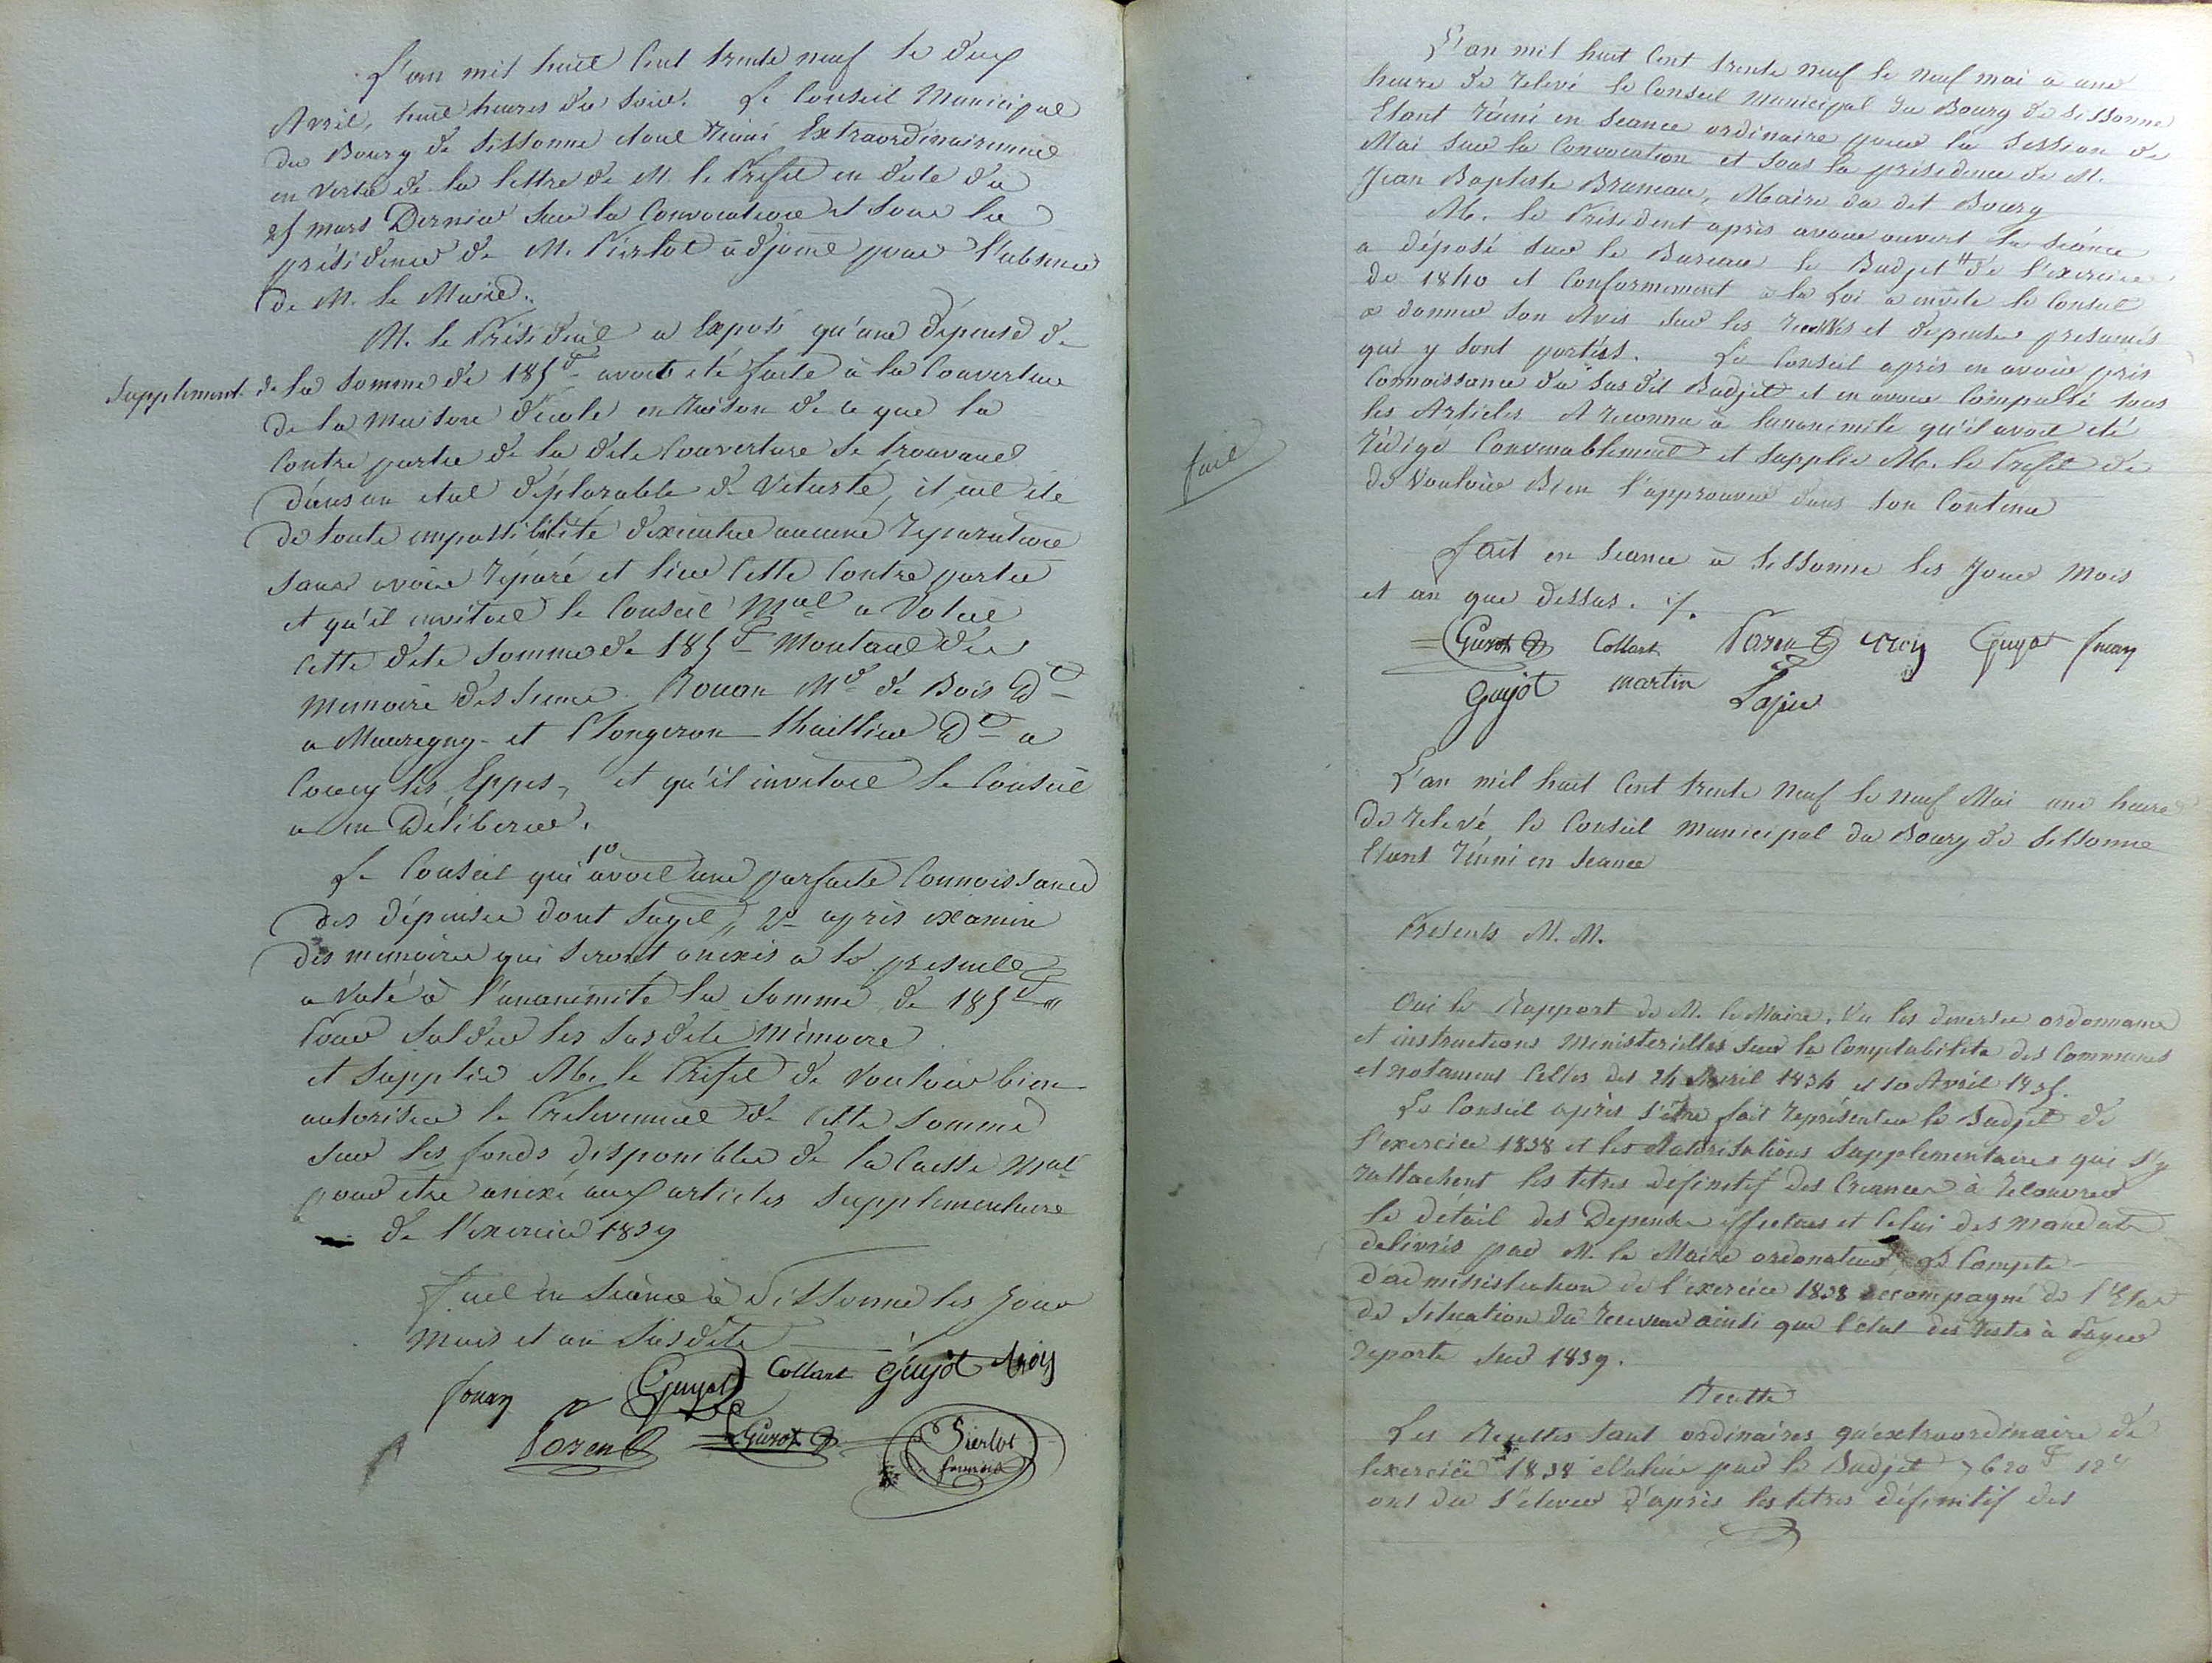 L'an mil huit Cent trente neuf le deux
Avril, huit heures du soir. Le Conseil Municipal
du Bourg de Sissonne étant réuni Extraordinairement
en vertu de la lettre de M. le Préfet en date du
25 mars Dernier sur la Convocation et sous la
présidence de M. Pierlot adjoint pour l'absence
de M. le Maire.
M. le Président a Exposé qu'une dépense de
Supplement. de la somme de 185 f avait été faite à la Couverture
de la Maison d'école en raison de ce que la
Contre partie de la dite Couverture se trouvant
dans un état déplorable de Vetusté, il eut été
de toute impossibilité d'exécuter aucune réparation
sans avoir réparé et livré Cette Contre partie
et qu'il invitait le Conseil Mal a Voter
Cette dite somme de 185 f Montant des
Memoire des sieurs Rouan Md de Bois Dt
a Mauregny et Clongeron thuillier Dt a
Coucy les Eppes, et qu'il invitait le Conseil
a en Délibérer.
Le Conseil qui 1o avait une parfaite Connoissance
des dépenses dont sagit, 2o après examen
des mémoires qui seront anéxés a la presente
a Voté à l'unanimité la somme de 185 f
Pour solder les susdits Mémoire
et Supplie M. le Préfet de Vouloir bien
autoriser le Prelevement de Cette somme
sur les fonds disponibles de la Caisse Mal
pour etre anéxé aux articles Supplementaire
de l'exercice 1839
fait en séance à Sissonne les jour
mois et an susdits
fouan Guyot Collart Guyot
Parent Gurot Pierlot
L'an mil huit Cent trente neuf le neuf mai à une
heure de relevé le Conseil Municipal du Bourg de Sissonne
Etant réuni en seance ordinaire pour la session de
Mai sur la Convocation et sous la présidence de M.
Jean Baptiste Bruneau, Maire du dit Bourg
M. le Président après avoir ouvert la séance
a déposé sur le Bureau le Budjet de l'exercice
de 1840 et Conformement à la Loi a invité le Conseil
a donner son Avis sur les recettes et dépenses presumés
qui y sont portées. Le Conseil après en avoir pris
Connoissance du susdit Budjet et en avoir Compulsé tous
les Articles A reconnu à lunanimité qu'il avait été
fait
rédigé Convenablement et supplie M. le Préfet de
de Vouloir Bien l'approuver dans son Contenu
fait en séance à Sissonne les Jour Mois
et an que dessus. ./.
Gurot Collart Parent Guyot fouan
Guyot martin Lajeu
L'an mil huit Cent trente Neuf le neuf Mai une heure
de relevé le Conseil Municipal du Bourg de Sissonne
Etant réuni en Seance
Présents M. M.
Oui le Rapport de M. le Maire, Vu les diverses ordonnance
et instructions Ministerielles sur la Comptabilité des Communes
et notament Celles des 24 Avril 1834 et 10 Avril 1835.
Le Conseil après s'être fait représenter le Budjet de
l'exercice 1838 et les Autorisations Supplementaires qui s'y
rattachent les titres définitif des Créances à recouvrer
le détail des Dépenses effectues et Celui des mandats
délivrés par M. le Maire ordonateur, le Compte
d'administration de l'exercice 1838 accompagné de l'Etat
de situation du receveur ainsi que l'état des restes à Payer
reporté sur 1839.
Recette
Les Recettes tant ordinaires qu'extraordinaire de
l'exercice 1838 évaluée par le Budjet 7620 f 12 c
ont du s'élever d'après les titres définitif des